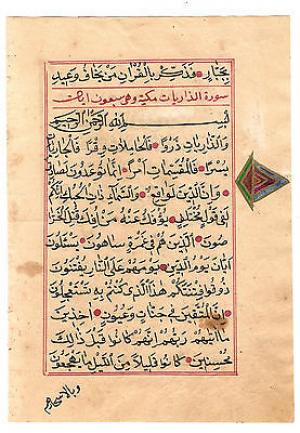 بِجَبَّارٍ فَذَكِّرْ بِالْقُرْآنِ مَنْ يَخَافُ وَعِيدِ
سورة الذاريات مكية وهي سبعون ايات
بِسْمِ اللهِ الرَّحْمٰنِ الرَّحِيمِ
وَالذَّارِيَاتِ ذَرْوًا فَالْحَامِلَاتِ وِقْرًا فَالْجَارِيَاتِ
يُسْرًا فَالْمُقَسِّمَاتِ أَمْرًا إِنَّمَا تُوعَدُونَ لَصَادِقٌ
وَإِنَّ الدِّينَ لَوَاقِعٌ وَالسَّمَاءِ ذَاتِ الْحُبُكِ إِنَّكُمْ
لَفِي قَوْلٍ مُخْتَلِفٍ يُؤْفَكُ عَنْهُ مَنْ أُفِكَ قُتِلَ الْخَرَّا
صُونَ الَّذِينَ هُمْ فِي غَمْرَةٍ سَاهُونَ يَسْئَلُونَ
أَيَّانَ يَوْمُ الدِّينِ يَوْمَ هُمْ عَلَى النَّارِ يُفْتَنُونَ
ذُوقُوا فِتْنَتَكُمْ هٰذَا الَّذِي كُنْتُمْ بِهِ تَسْتَعْجِلُونَ
إِنَّ الْمُتَّقِينَ فِي جَنَّاتٍ وَعُيُونٍ آخِذِينَ
مَا آتٰيهُمْ رَبُّهُمْ إِنَّهُمْ كَانُوا قَبْلَ ذٰلِكَ
مُحْسِنِينَ كَانُوا قَلِيلًا مِنَ اللَّيْلِ مَا يَهْجَعُونَ
وبالاسحارهم